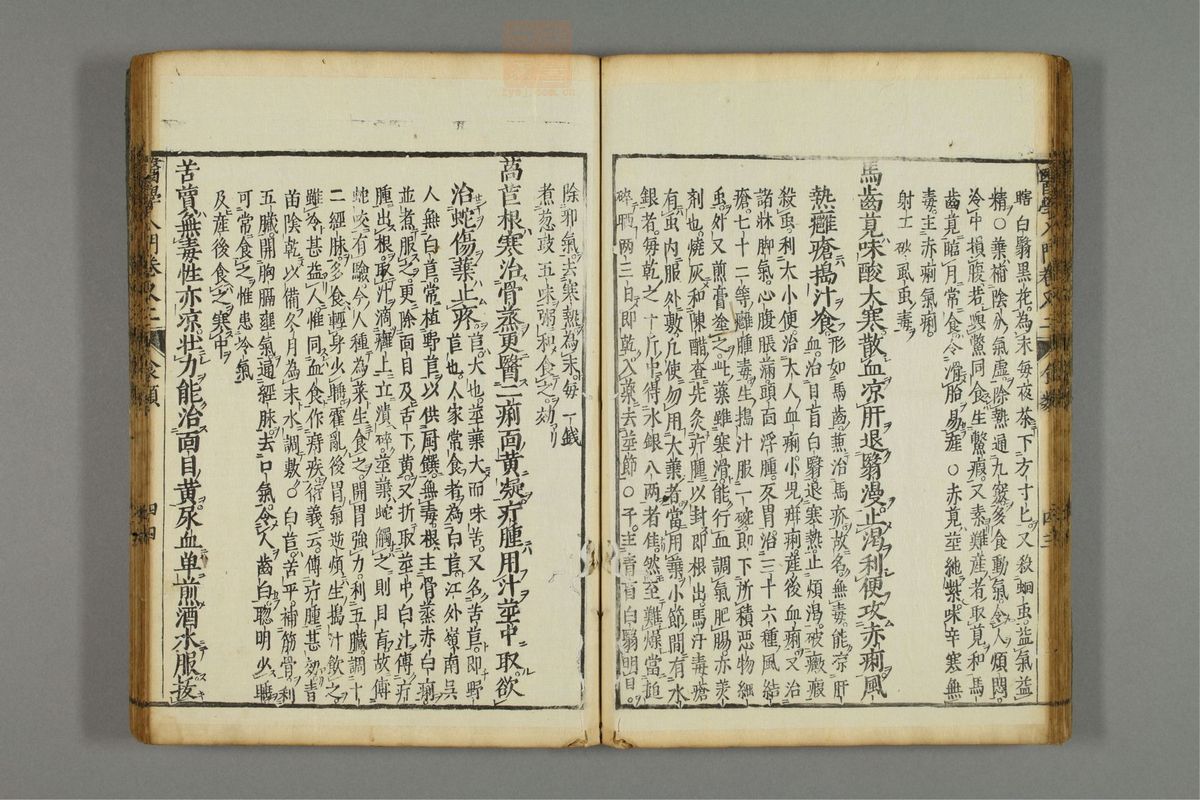 瞎白翳黒花為末每夜茶下方寸匕又殺蛔虫益氣益
精○葉補陰分氣虛除熱通九竅多食動氣令人煩悶
冷中損腹若與鱉同食生鱉瘕又素難産者取莧和馬
齒莧臨月常食令滑胎易産○赤莧莖純紫味辛寒無
毒主赤痢氣痢
射工砂虱虫毒
馬齒莧味酸大寒散血凉肝退翳漫止渴利便攻赤痢風
熱癰瘡搗汁飡形如馬齒葱治馬疥故名無毒能凉肝
血治目盲白翳退寒熱止煩渴破癥瘕
殺虫利大小便治大人血痢小兒疳痢産後血痢又治
諸淋脚氣心腹脹滿頭面浮腫反胃治三十六種風結
瘡七十二等癰腫毒生搗汁服一碗即下所積惡物細
虫外又煎膏塗之此藥雖寒滑能行血調氣肥腸亦美
劑也燒灰和陳醋查先灸疔腫以封即根出馬汗毒瘡
有虫内服外敷凡使勿用大葉者當用葉小節間有水
銀者每乾之十斤中得水銀八兩者佳然至難燥當搥
碎晒兩三日即乾入藥去莖節○子主青盲白翳明目
除邪氣去寒熱為末每一錢
煮葱豉五味粥和食之効
萵苣根寒治骨蒸更醫二痢面黄疑疔腫用汁莖中取欲
治蛇傷葉止疼苣大也莖葉大而味苦又名苦苣即野
苣也人家常食者為白苣江外嶺南吳
人無白苣常植野苣以供厨饌無毒根主骨蒸赤白痢
並煮服之更除面目及舌下黄又折取莖中白汁傅疔
腫出根取汁滴癰上立潰碎莖葉蛇觸之則目盲故傅
蛇咬有驗今人種為菜生食之開胃強力利五臟調十
二經脉多食輕身少睡霍亂後胃氣逆煩生搗汁飲之
雖冷甚益人惟同血食作痔疾衍義云傅疔腫甚効青
苗陰乾以備冬月為末水調敷○白苣苦平補筋骨利
五臟開胸膈壅氣通經脉去口氣令人齒白聰明少睡
可常食之惟患冷氣
及産後食之寒中
苦蕒無毒性亦凉壮力能治面目黄尿血单煎酒水服孩
醫學入門卷
食類
四三
四四